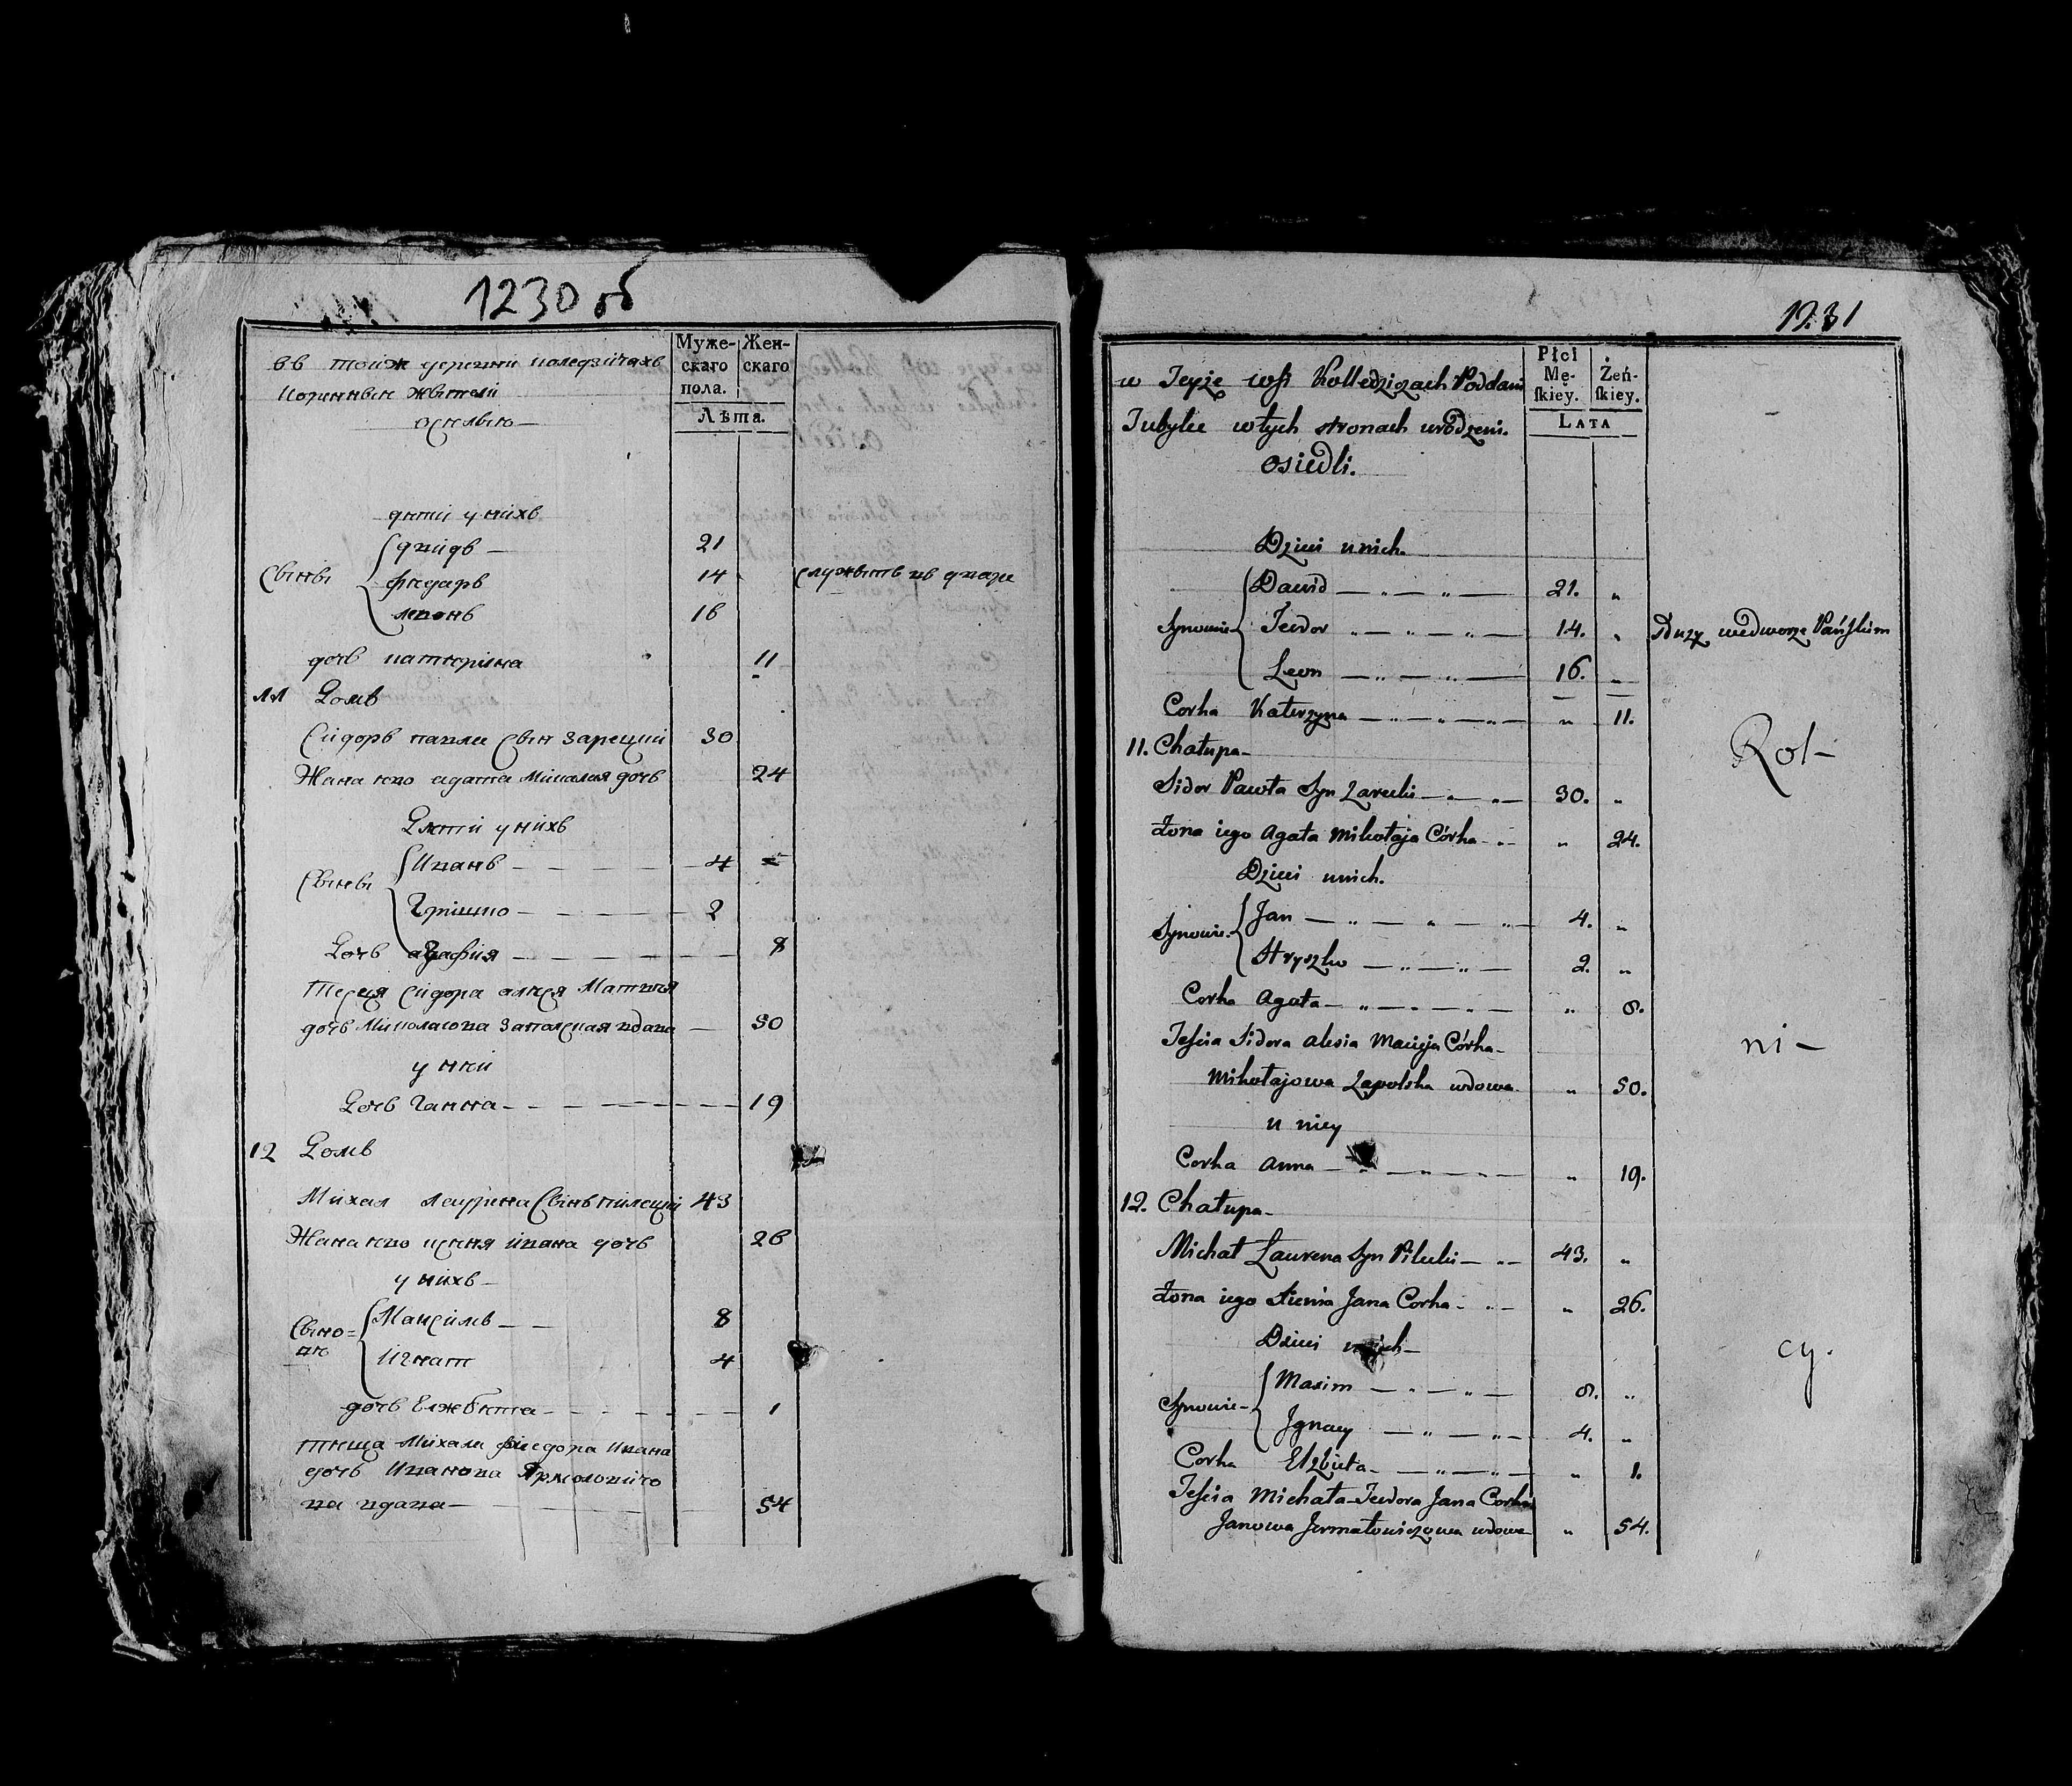 1230 об
въ тойж деревни коледзичахъ
коринныи жытели
оселыю
Муже-
скаго
пола.
Жен-
скаго
Лѣта.
дети у нихъ
Сыны
давидъ — 21
фидаръ 14 служытъ въ дваре
левонъ 16
дочь катерина 11
11 Домъ
Сидоръ павла Сын зарецки 30
Жана его агата Миколая дочь 24
Дети у нихъ
Сыны
Иванъ — 4
Гришко — 2
Дочь агафия — 8
тесця Сидора алеся Матвея
дочь Миколаюва Запольская вдава — 50
у неи
Дочь Ганна — 19
12 Домъ
Михал Леурина Сынъ пилецки 43
Жана его ксеня ивана дочь 26
у нихъ —
Сыно=
ве
Максимъ — 8
Игнат 4
дочь Елжбета — 1
теща Михала фиедора Ивана
дочь Иванова Ярмоловичо
ва вдава — 54
1231
w Teyże wsi Kolledziczach Poddani
Tubylce wtych stronach urodzeni.
osiedli.
Płci
Mę-
ſkiey.
Żeń-
ſkiey.
LATA
Dzieci unich.
Synowie
Dawid — 21. „
Teodor — 14. „ Służy wedworze Pańskim
Leon — 16. „
Corka Katerzyna — „ 11.
11. Chałupa —
Sidor Pawła Syn Zarecki — 30. „
Żona iego Agata Mikołaja Córka — „ 24.
Dzieci unich.
Synowie
Jan — 4. „
Hryszko — 2. „
Corka Agata — „ 8.
Teścia Sidora Alesia Macieja Córka —
Mikołajowa Zapolska wdowa „ 50.
u niey
Corka Anna — „ 19.
12. Chałupa —
Michał Laurena Syn Pilecki — 43. „
Żona iego Xienia Jana Corka — „ 26.
Dzieci unich —
Synowie —
Maxim — 8. „
Ignacy — 4. „
Corka Elzbieta — „ 1.
Teścia Michała Teodora Jana Corka
Janowa Jermałowiczowa wdowa „ 54.
Rol-
ni-
cy.